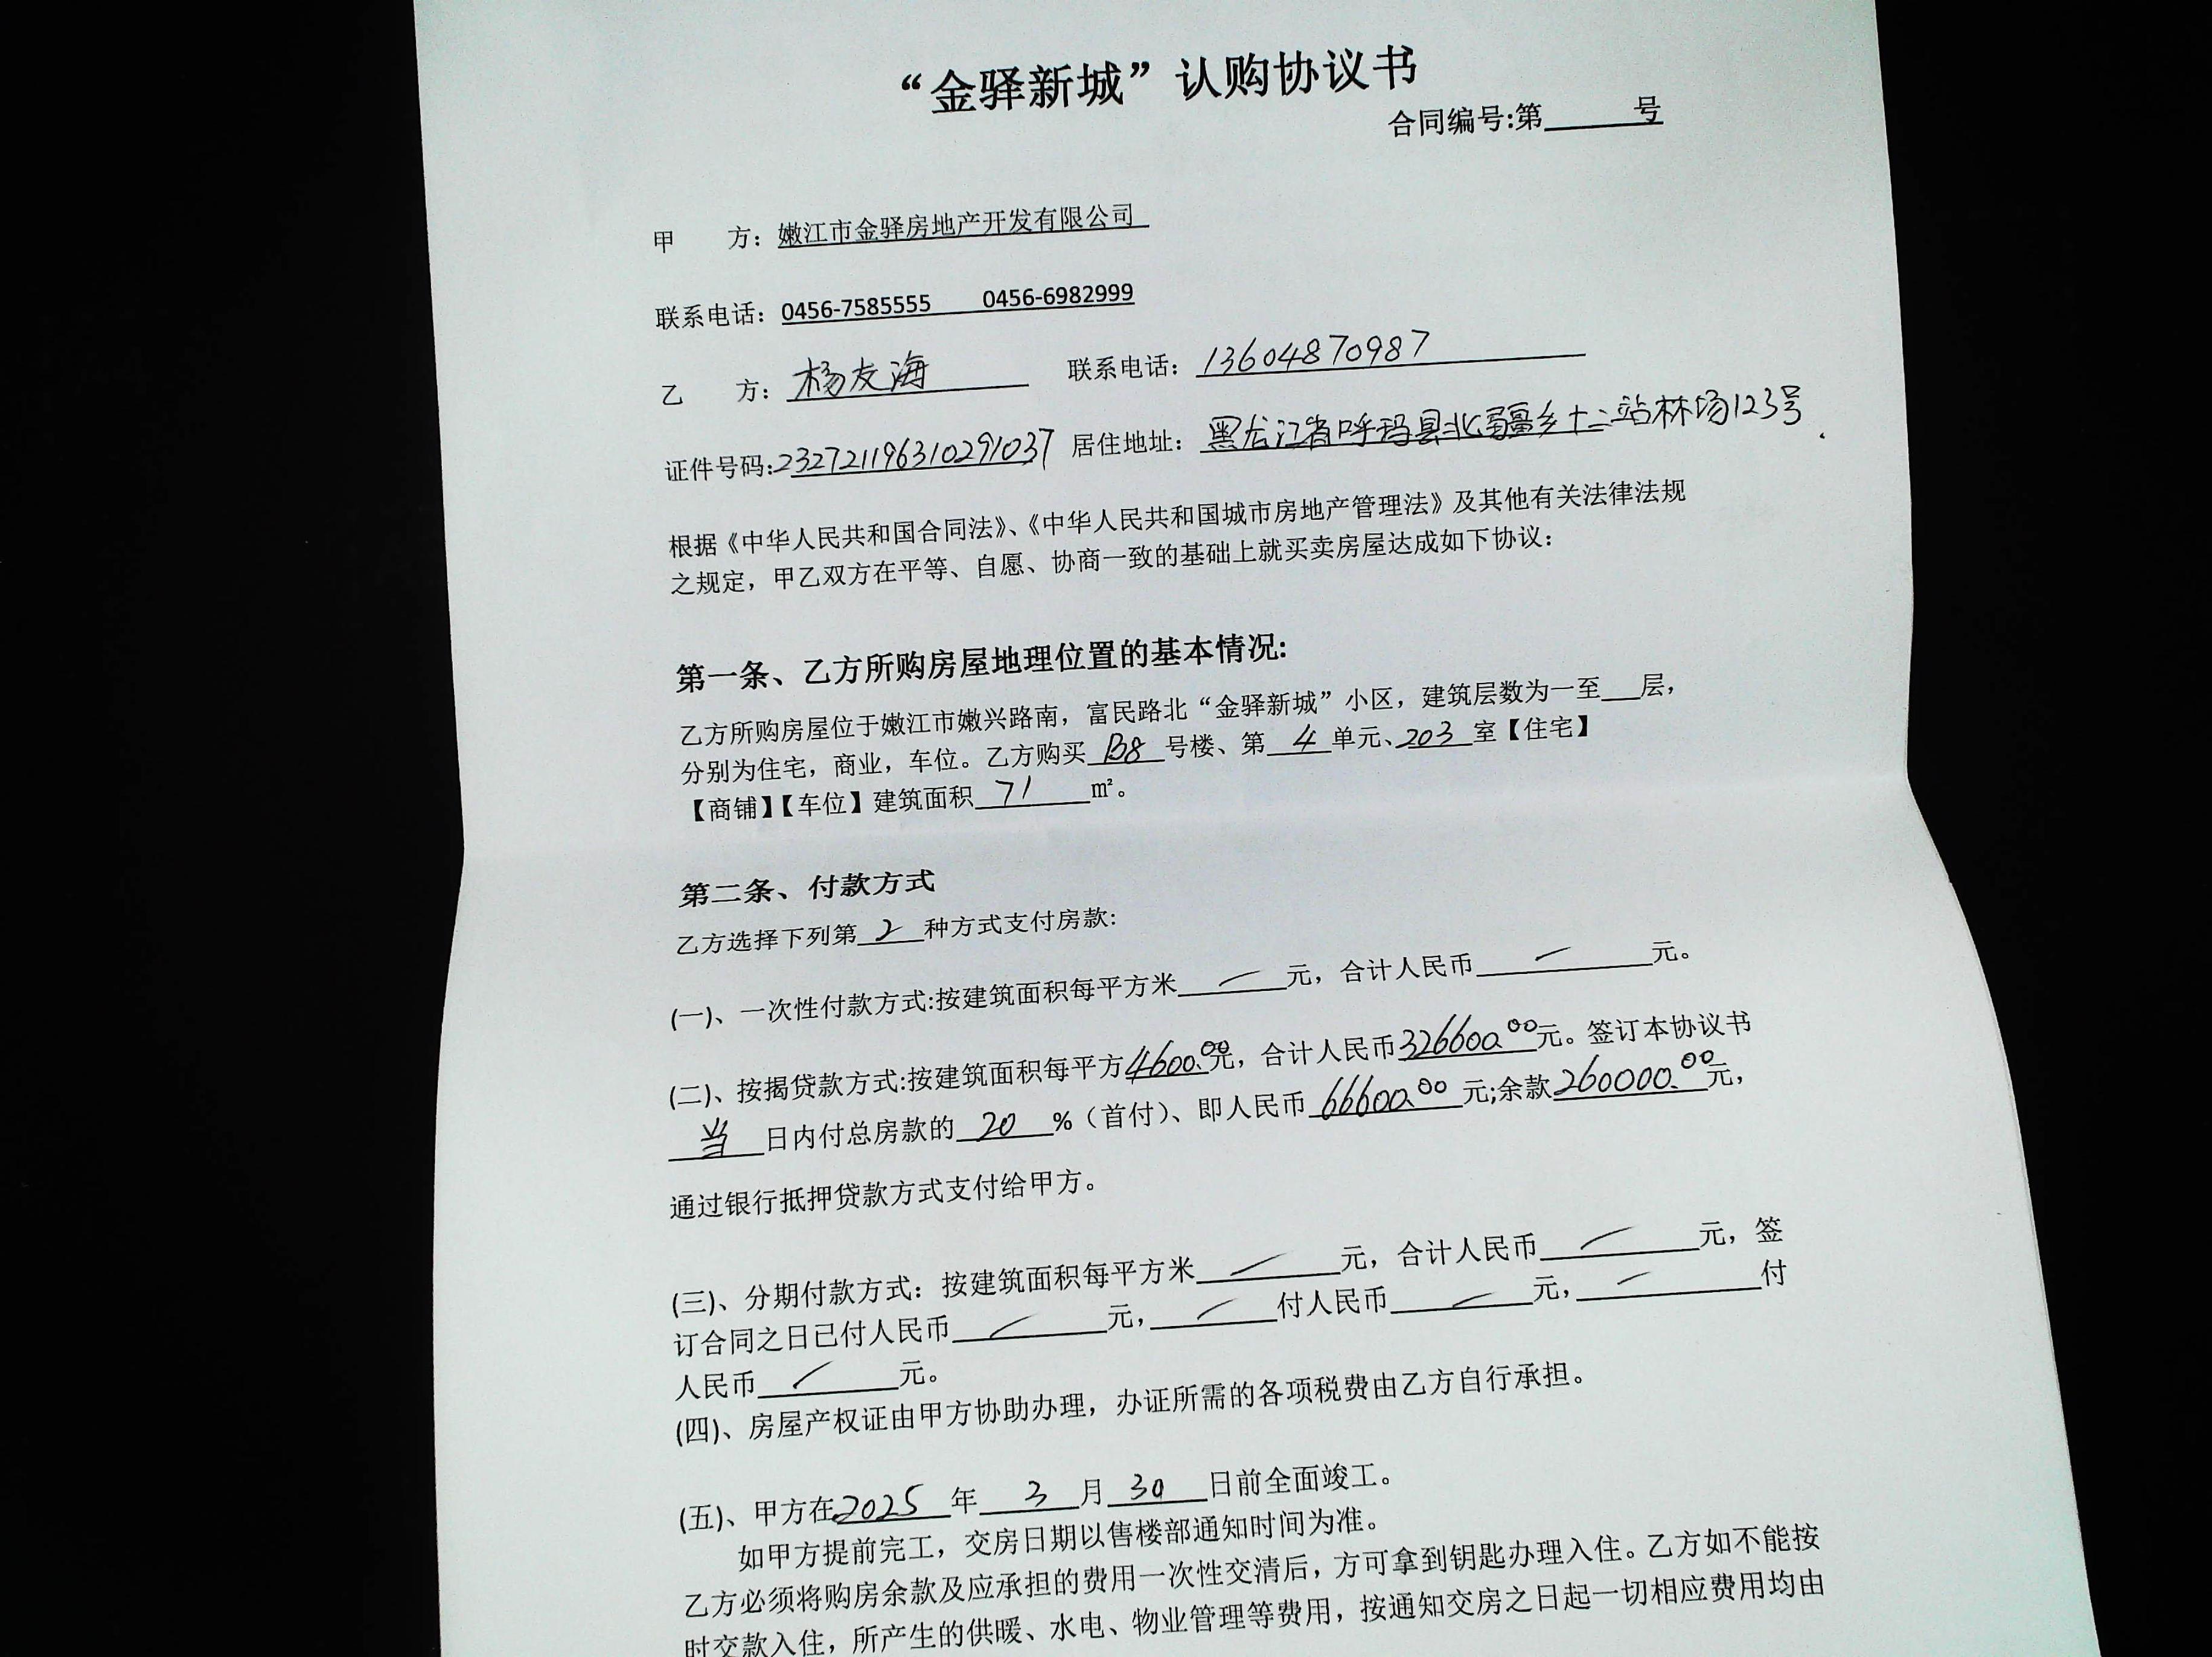 “金驿新城”认购协议书
合同编号:第______号
甲 方：嫩江市金驿房地产开发有限公司
联系电话：0456-7585555 0456-6982999
乙 方：杨友海 联系电话：13604870987
证件号码:232721196310291037 居住地址：黑龙江省呼玛县北疆乡十二站林场123号
根据《中华人民共和国合同法》、《中华人民共和国城市房地产管理法》及其他有关法律法规
之规定，甲乙双方在平等、自愿、协商一致的基础上就买卖房屋达成如下协议：
第一条、乙方所购房屋地理位置的基本情况:
乙方所购房屋位于嫩江市嫩兴路南，富民路北“金驿新城”小区，建筑层数为一至___层，
分别为住宅，商业，车位。乙方购买 B8 号楼、第 4 单元、203 室【住宅】
【商铺】【车位】建筑面积 71 ㎡。
第二条、付款方式
乙方选择下列第 2 种方式支付房款:
(一)、一次性付款方式:按建筑面积每平方米 / 元，合计人民币 / 元。
(二)、按揭贷款方式:按建筑面积每平方4600.00元，合计人民币326600.00元。签订本协议书
当 日内付总房款的 20 %（首付）、即人民币 66600.00 元;余款260000.00元，
通过银行抵押贷款方式支付给甲方。
(三)、分期付款方式：按建筑面积每平方米 / 元，合计人民币 / 元，签
订合同之日已付人民币 / 元， / 付人民币 / 元， / 付
人民币 / 元。
(四)、房屋产权证由甲方协助办理，办证所需的各项税费由乙方自行承担。
(五)、甲方在2025 年 3 月 30 日前全面竣工。
如甲方提前完工，交房日期以售楼部通知时间为准。
乙方必须将购房余款及应承担的费用一次性交清后，方可拿到钥匙办理入住。乙方如不能按
时交款入住，所产生的供暖、水电、物业管理等费用，按通知交房之日起一切相应费用均由